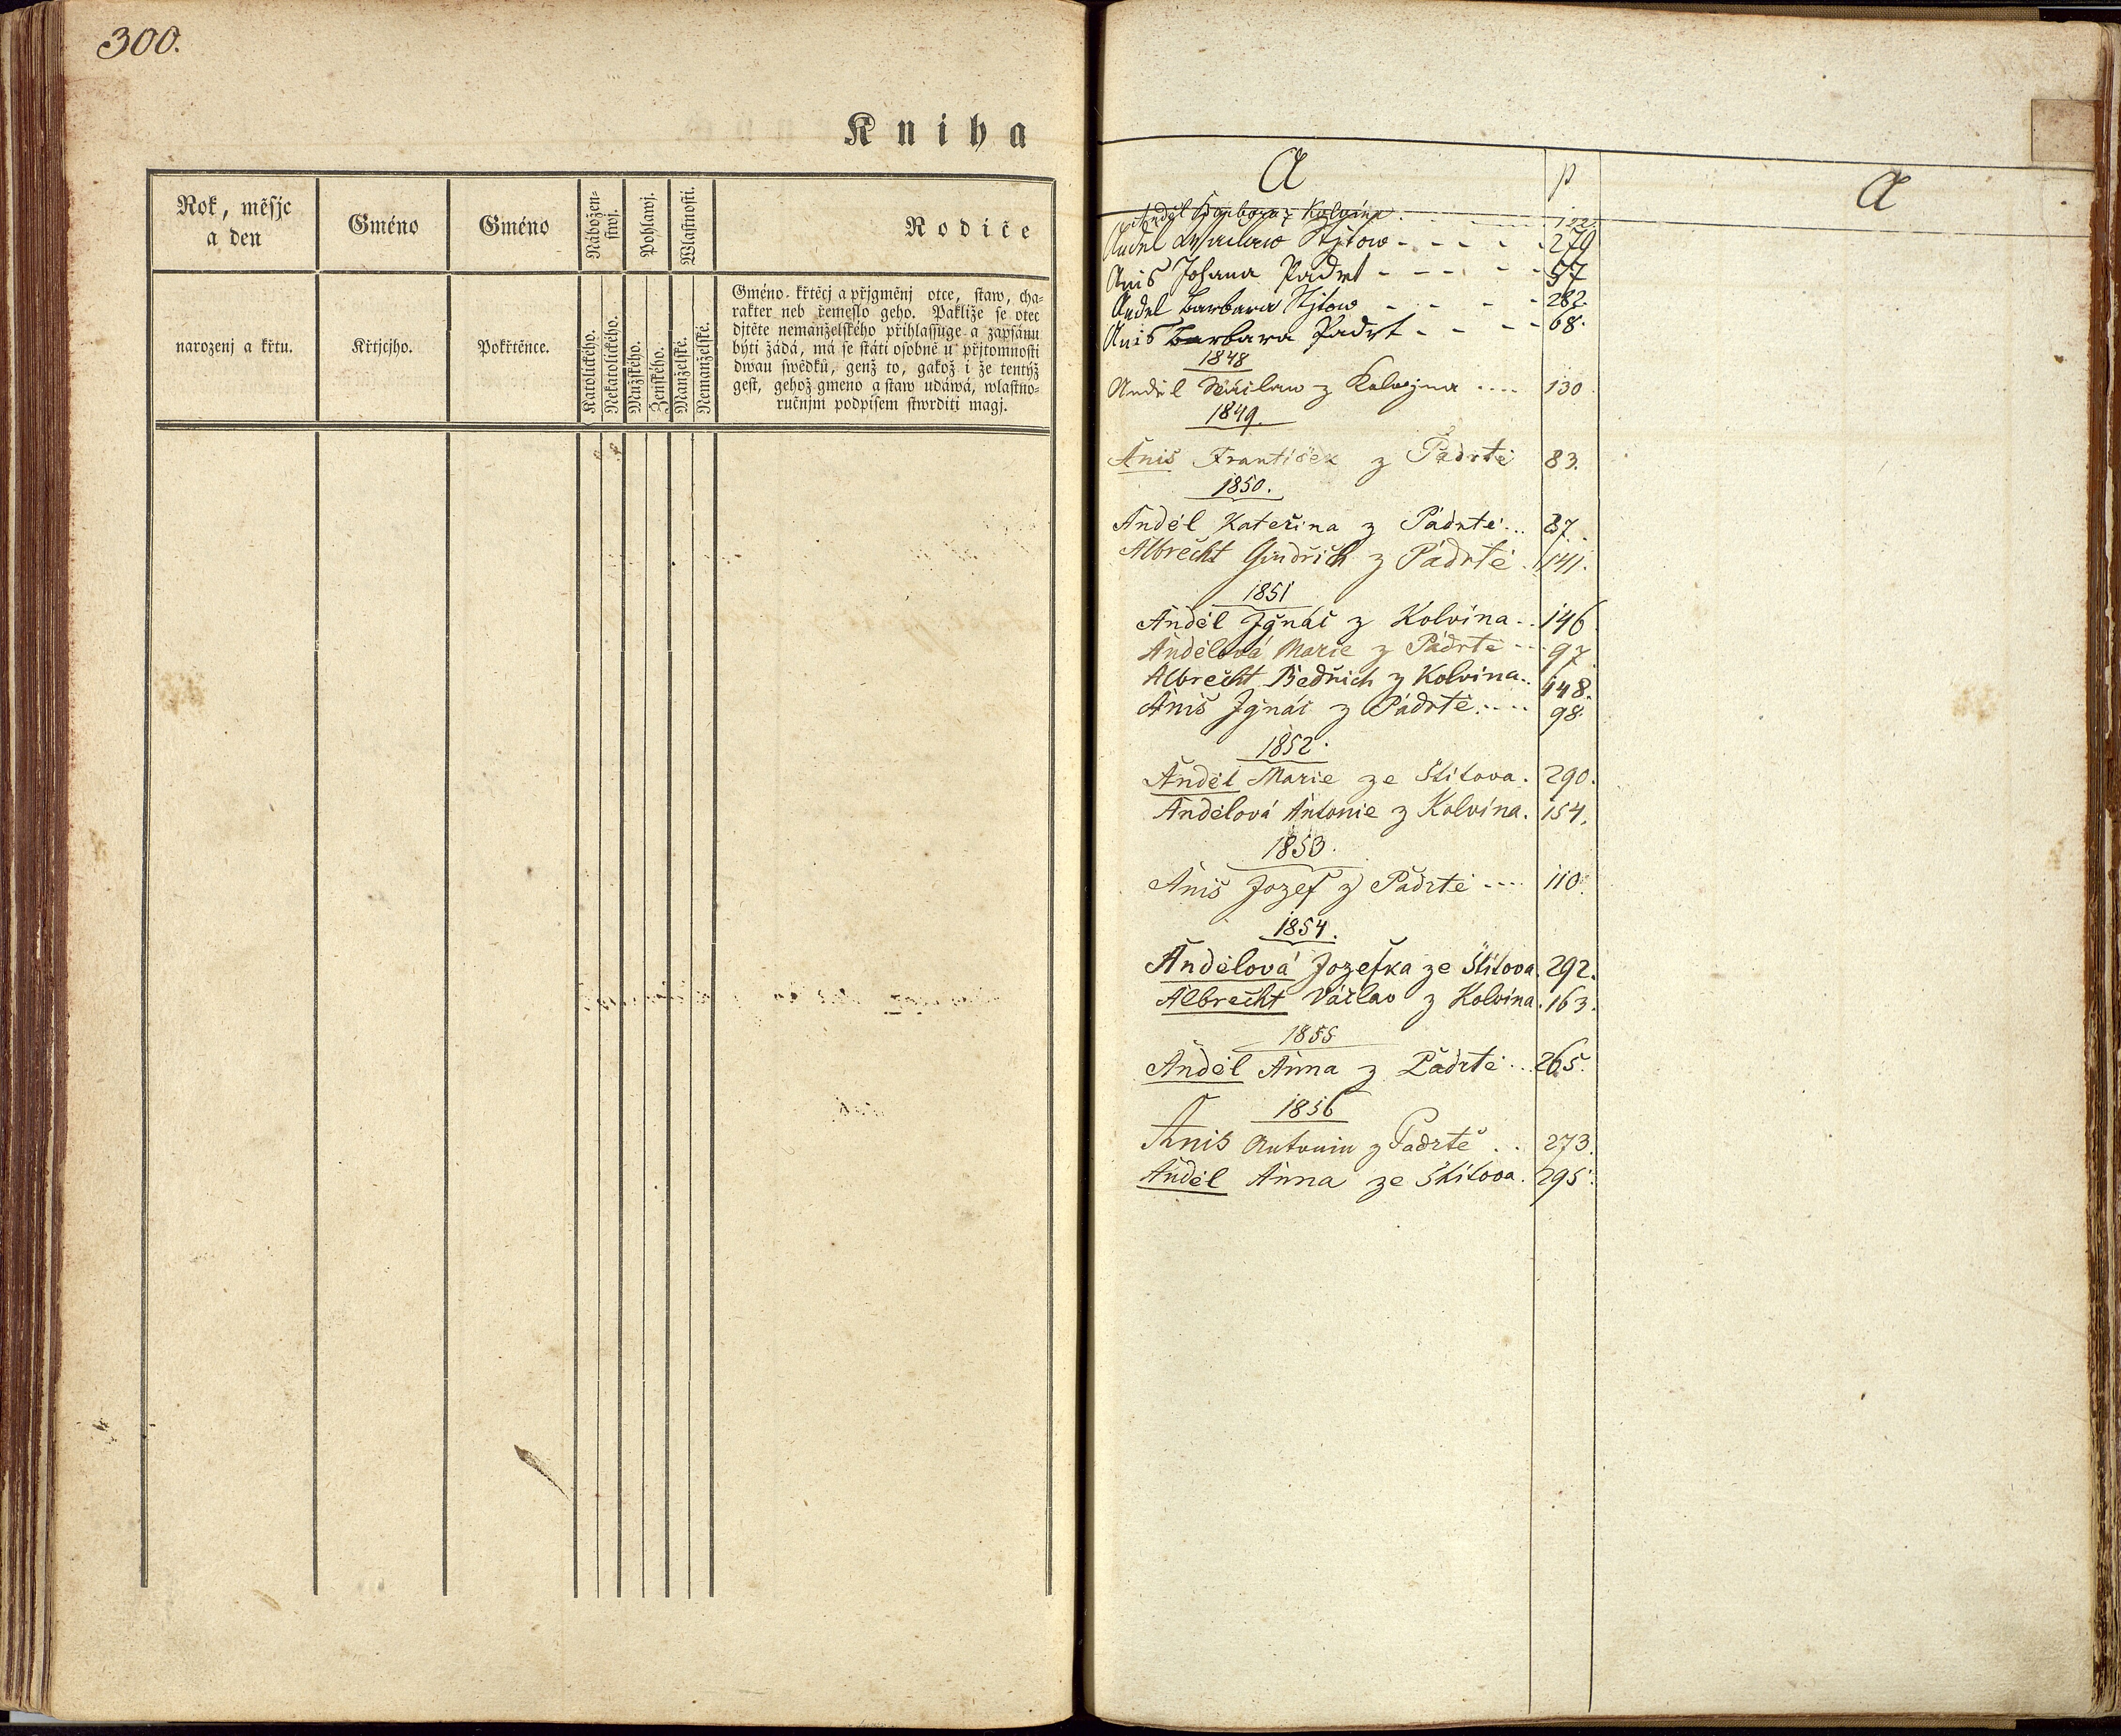 300.
Kniha
Rok, měsjc
a den
Gméno
Gméno
Nábožen-
stwj.
Pohlawj.
Wlastnosti.
Rodiče
narozenj a křtu.
Křtjcjho.
Pokřtěnce.
Katolického.
Nekatolického.
Mužského.
Ženského.
Manželské.
Nemanželské.
Gméno- křtěcj a přjgměnj otce, staw, cha-
rakter neb řemeslo geho. Pakliže se otec
djtěte nemanželského přihlassuge a zapsánu
býti žádá, má se státi osobně u přjtomnosti
dwau swědků, genž to, gakož i že tentýž
gest, gehož gmeno a staw udáwá, wlastno-
ručnjmi podpisem stwrditi magj.
A p A
Anděl Barbora z Kolvína 122.
Anděl Waclaw Stjtow - - - - 279
Anis Johana Padrt - - - - 57
Anděl Barbara Stjtow - - - - 282.
Anis Barbara Padrt - - - - 68.
1848
Anděl Wáclaw z Kolwjna .... 130.
1849.
Aniš František z Padrtě 83.
1850.
Anděl Kateřina z Pádrtě... 87.
Albrecht Gindřich z Pádrtě. 141.
1851
Anděl Ignác z Kolvína.. 146
Andělová Marie z Pádrtě -- 97.
Albrecht Bedřich z Kolvína.. 148.
Aniš Ignác z Pádrtě..... 98.
1852.
Anděl Marie ze Štítova. 290.
Andělová Antonie z Kolvína. 154.
1853.
Aniš Jozef z Padrtě .... 110.
1854.
Andělová Jozefka ze Štítova. 292.
Albrecht Václav z Kolvína. 163.
1855
Anděl Anna z Padrtě... 265.
1856
Anis Antonin z Padrtě.. 273.
Anděl Anna ze Štítova. 295.